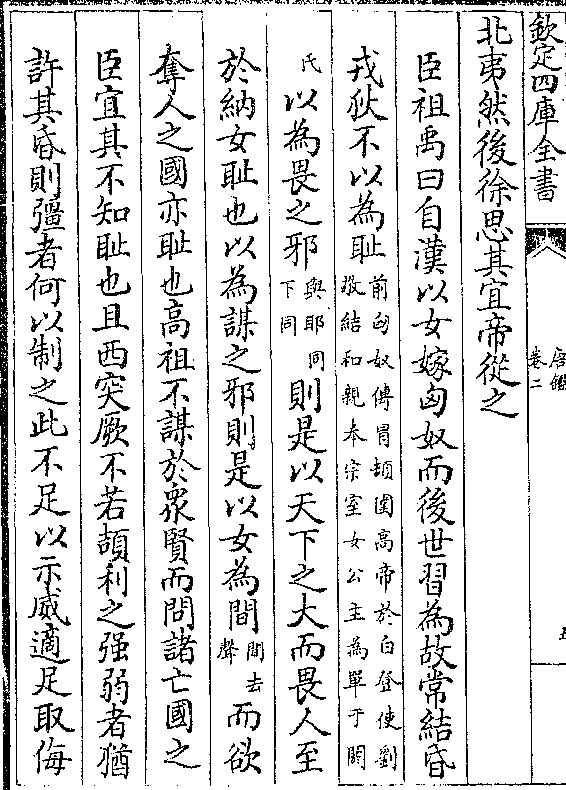 欽定四庫全書
唐鑑
卷二
五
北夷然後徐思其宜帝從之
臣祖禹曰自漢以女嫁匈奴而後世習為故常結昏
戎狄不以為耻前匈奴傳冒頓圍高帝於白登使劉敬結和親奉宗室女公主為單于閼
氏以為畏之邪與耶同下同則是以天下之大而畏人至
於納女耻也以為謀之邪則是以女為間間去聲而欲
奪人之國亦耻也高祖不謀於衆賢而問諸亡國之
臣宜其不知耻也且西突厥不若頡利之强弱者猶
許其昏則彊者何以制之此不足以示威適足取侮